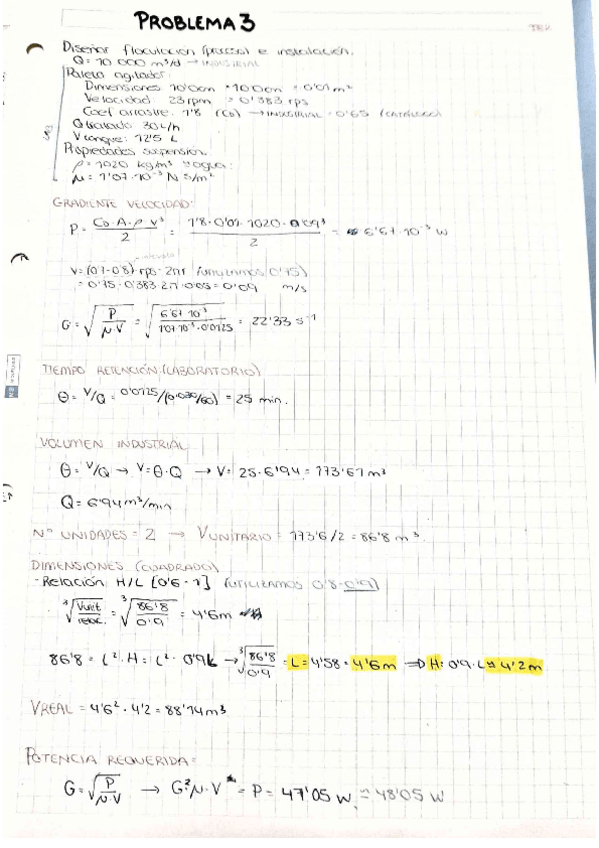 PROBLEMA 3
Diseñar floculación (proceso) e instalación.
Q = 10 000 m³/d → INDUSTRIAL
Paleta agitador:
Dimensiones 10'0cm * 10'0cm = 0'01 m²
Velocidad 23 rpm = 0'383 rps
Coef arrastre: 1'8 (CD) → INDUSTRIAL = 0'65
Q tratado 30 L/h
V tanque: 12'5 L
Propiedades suspensión.
ρ = 1020 kg/m³ agua
μ = 1'07·10⁻³ N s/m²
GRADIENTE VELOCIDAD:
P = CD·A·ρ·v³ / 2 = 1'8·0'01·1020·0'09³ / 2 = 6'67·10⁻³ W
V = (0'7-0'8)·rps·2πr (utilizamos 0'75)
= 0'75·0'383·2π·0'05 = 0'09 m/s
G = √(P / μ·V) = √(6'67·10⁻³ / 1'07·10⁻³·0'0125) = 22'33 s⁻¹
TIEMPO RETENCIÓN (LABORATORIO)
θ = V/Q = 0'0125/(0'030/60) = 25 min.
VOLUMEN INDUSTRIAL
θ = V/Q → V = θ·Q → V = 25·6'94 = 173'61 m³
Q = 6'94 m³/min
Nº UNIDADES = 2 → VUNITARIO = 173'6/2 = 86'8 m³.
DIMENSIONES (CUADRADO)
- Relación H/L [0'6 - 1] (utilizamos 0'8-0'9)
³√(Vunit / relac.) = ³√(86'8 / 0'9) = 4'6m
86'8 = L²·H = L²·0'9L → ³√(86'8 / 0'9) = L = 4'58 = 4'6m ⇒ H = 0'9·L ≈ 4'2m
VREAL = 4'6²·4'2 = 88'74 m³
POTENCIA REQUERIDA =
G = √(P / μ·V) → G²·μ·V = P = 47'05 W ≈ 48'05 W